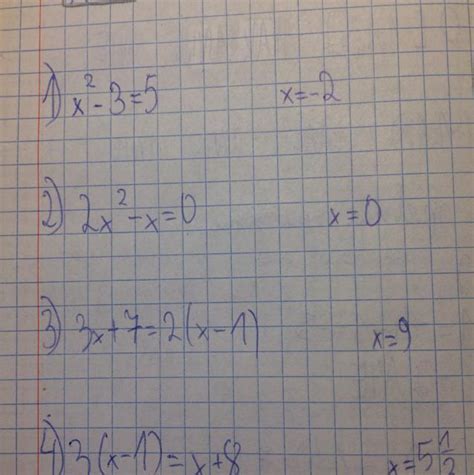 1) x² - 3 = 5 x = -2
2) 2x² - x = 0 x = 0
3) 3x + 7 = 2(x - 1) x = 9
4) 3(x - 1) = x + 8 x = 5 1/2